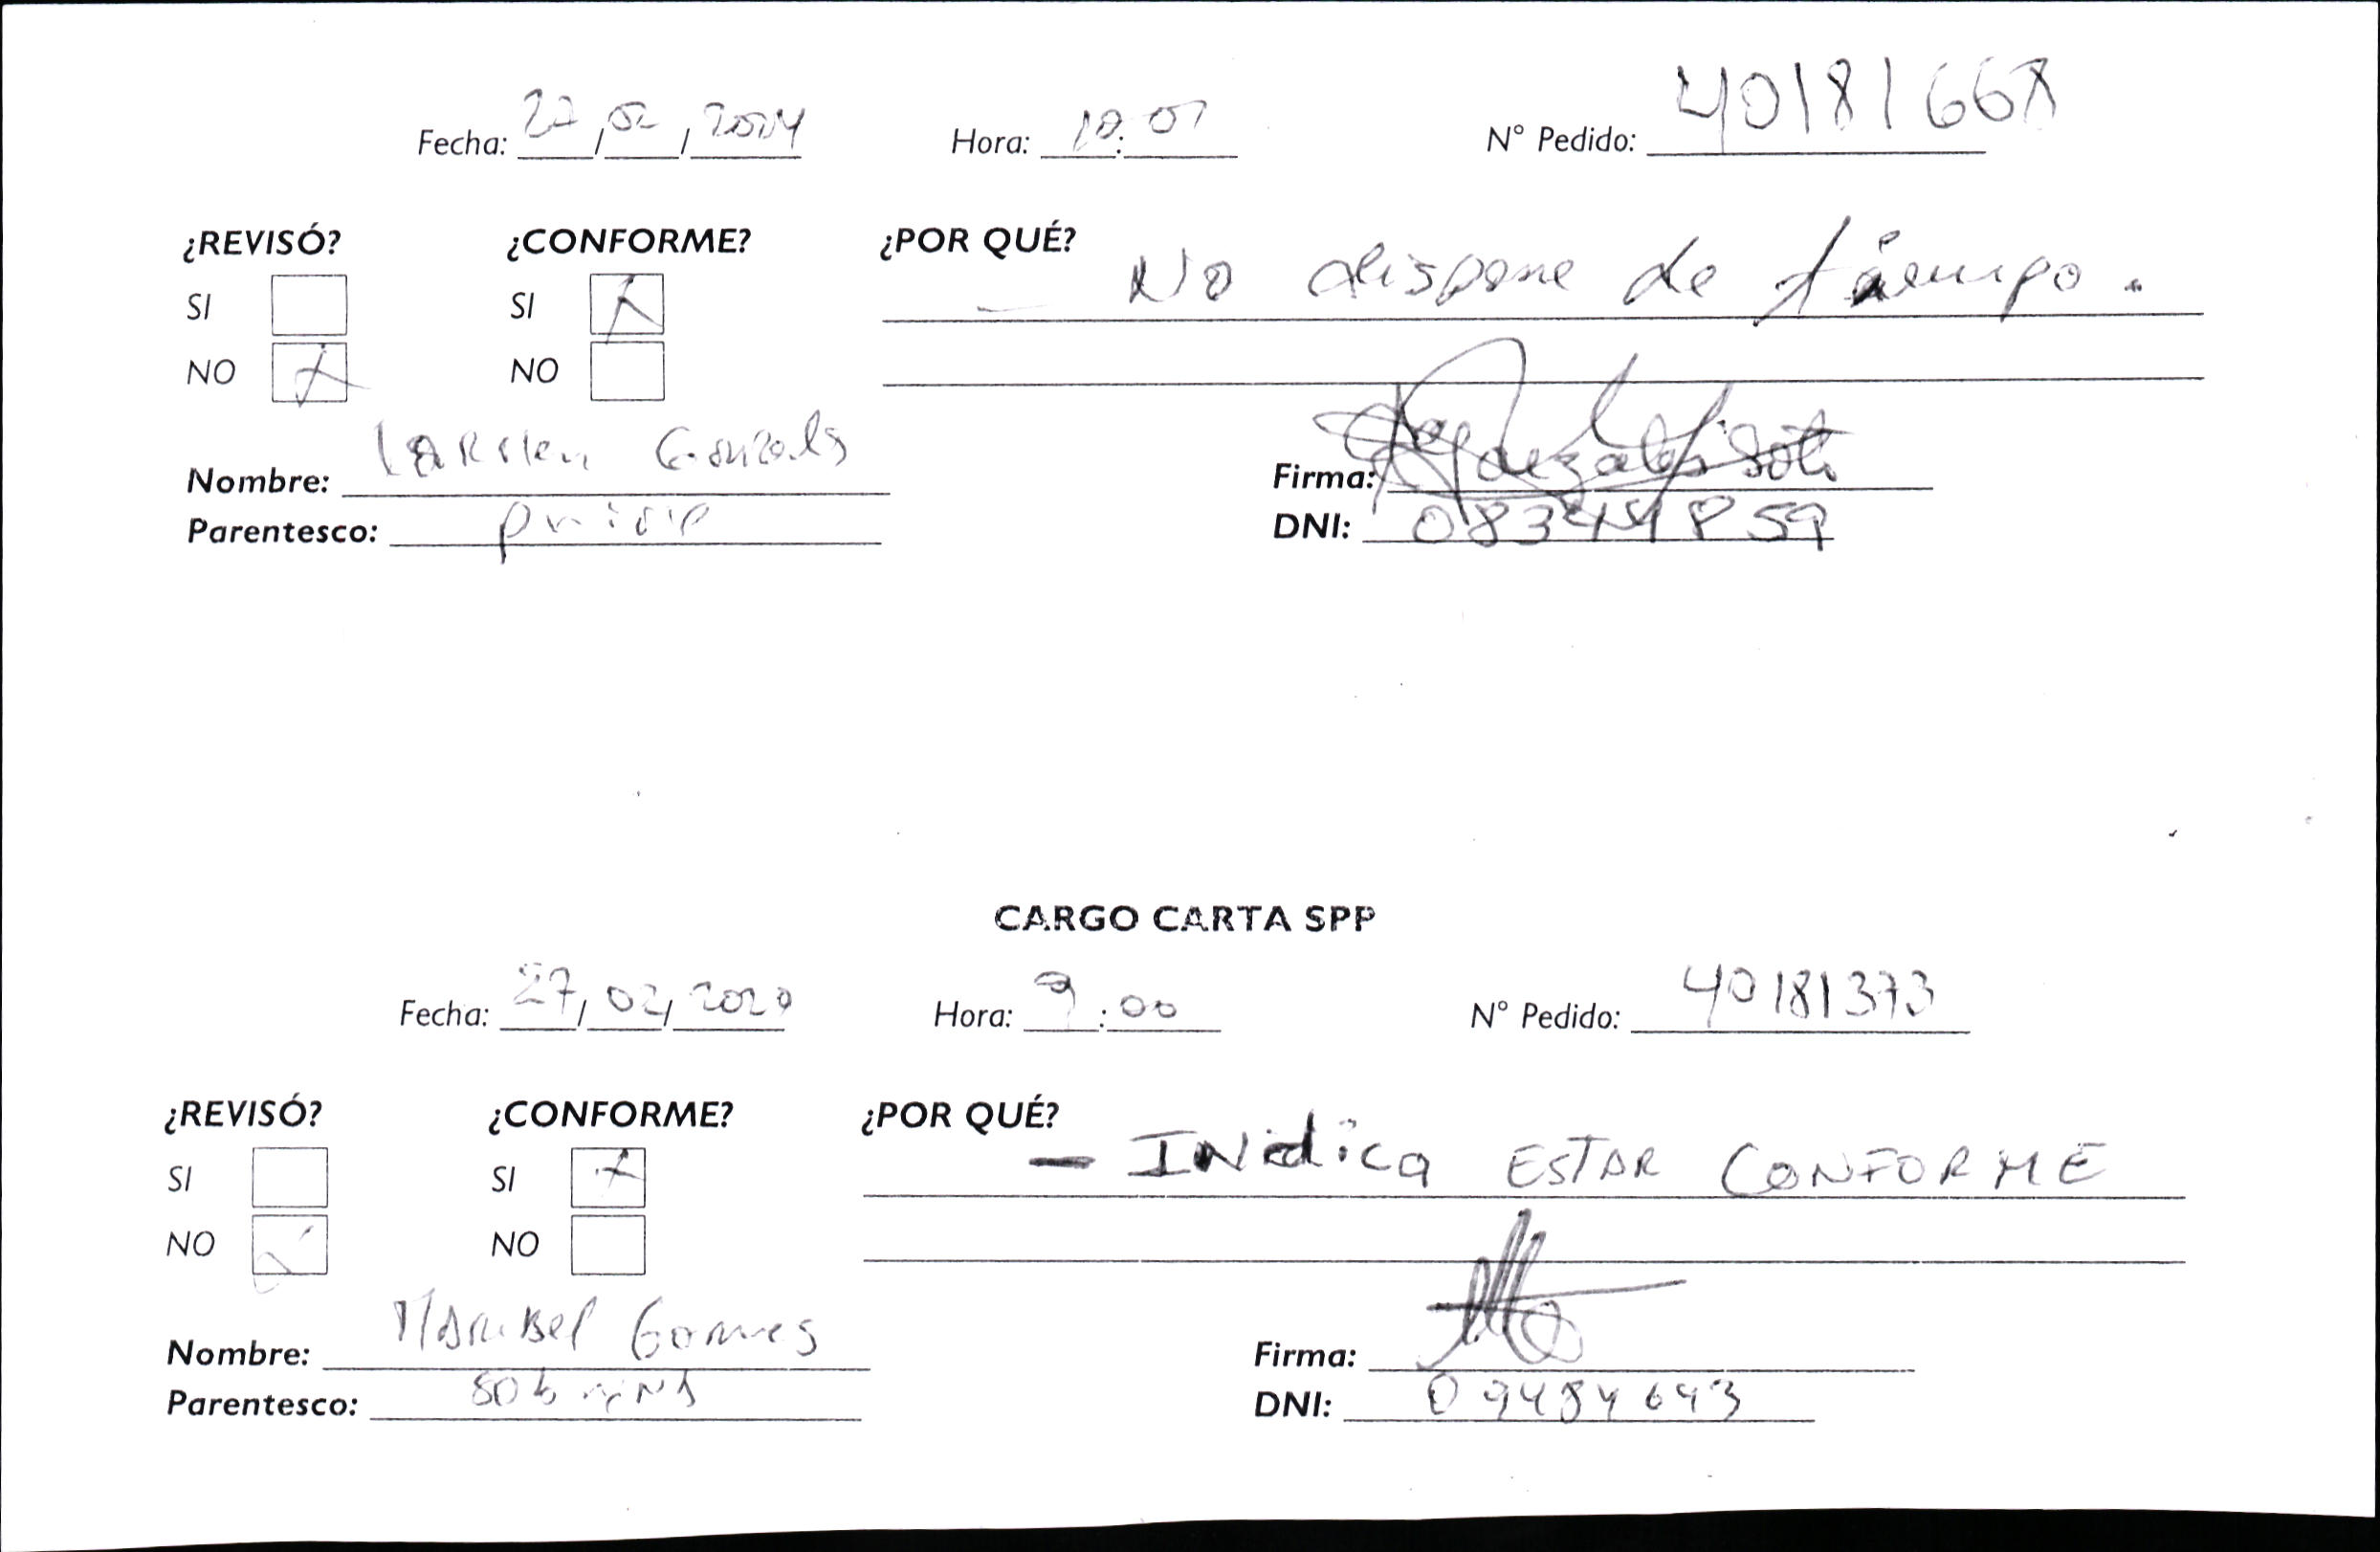 Fecha: 27/02/ Hora: 10:01 N° Pedido: 40181668
¿REVISÓ? ¿CONFORME? ¿POR QUÉ?
SI SI X — No dispone de tiempo.
NO X NO
Nombre: Carmen Gonzales Firma: Gonzales Soto
Parentesco: DNI:
CARGO CARTA SPP
Fecha: 27/02/2020 Hora: 9:00 N° Pedido: 40181373
¿REVISÓ? ¿CONFORME? ¿POR QUÉ?
SI SI X — INdica ESTAR CONFORME
NO NO
Nombre: Maribel Gomes Firma:
Parentesco: sobrina DNI: 09484643